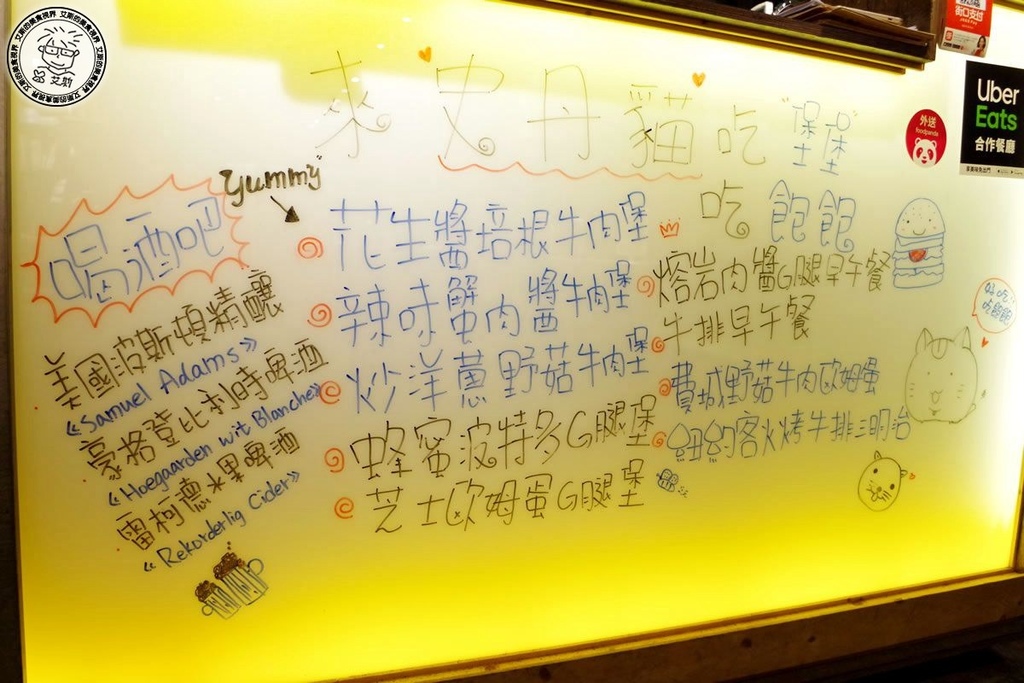 艾斯的美食視界 艾斯的美食視界 艾斯的美食視界
艾斯
來史丹貓吃"堡堡"
吃飽飽
Yummy
喝酒吧
美國波斯頓精釀
《Samuel Adams》
豪格登比利時啤酒
《Hoegaarden wit Blanche》
雷柯德水果啤酒
《Rekorderlig Cider》
花生醬培根牛肉堡
辣味蟹肉醬牛肉堡
炒洋蔥野菇牛肉堡
蜂蜜波特多G腿堡
芝士歐姆蛋G腿堡
熔岩肉醬G腿早午餐
牛排早午餐
費城野菇牛肉歐姆蛋
紐約客火烤牛排三明治
吃飽飽
街口支付
外送
foodpanda
Uber
Eats
合作餐廳